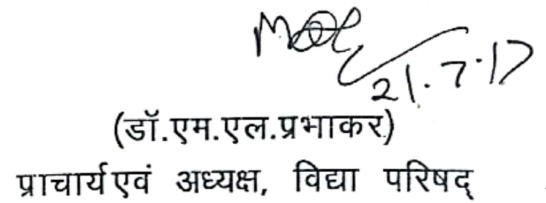 21.7.17
(डॉ.एम.एल.प्रभाकर)
प्राचार्य एवं अध्यक्ष, विद्या परिषद्